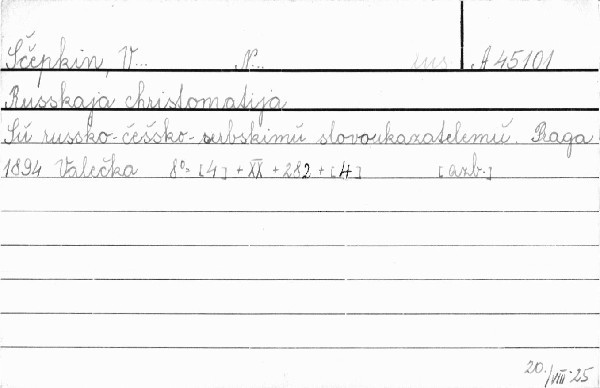 Ščepkin, V... N... rus A 45101
Russkaja christomatija
Sŭ russko-češsko-serbskimŭ slovoukazatelemŭ. Praga
1894 Valečka 8º= [4] + XX + 282 + [4] [azb.]
20./VIII 25